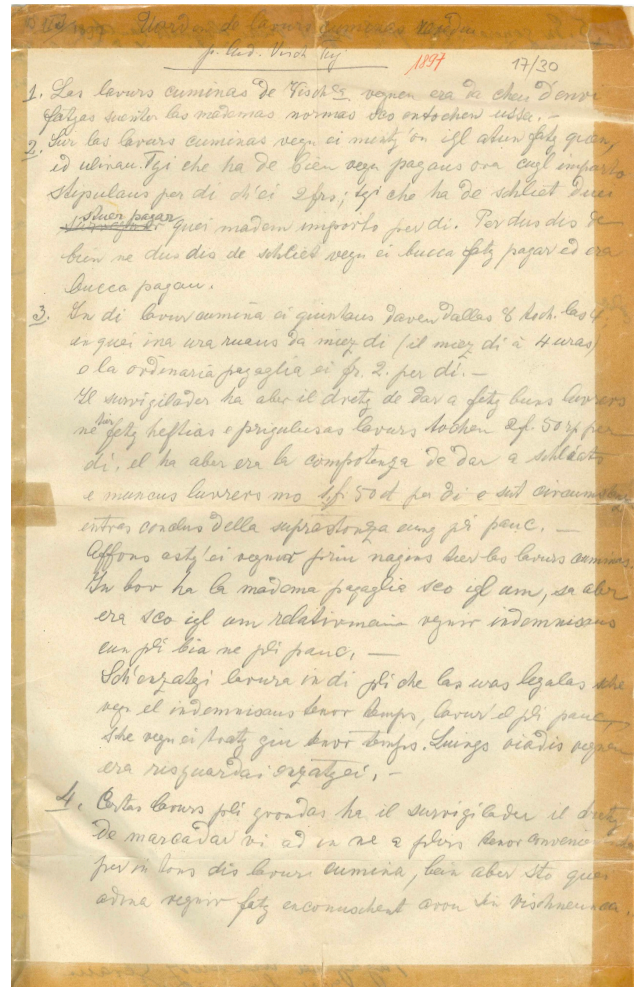 de lavurs cuminas
p. Lud. Visch
1897
17/30
1. Las lavurs cuminas de Visch vegnen era da cheu d'envi
fatgas suenter las madémas normas sco entochen ussa. –
2. Sur las lavurs cuminas vegn ei igl atun fatg quen,
ed ulivau. Tgi che ha de bien vegn pagaus ora cugl importo
stipulaus per di ch'ei 2 frs; tgi che ha de schliet duei
stuer pagar
quei madem importo per di. Per dus dis de
bien ne dus dis de schliet vegn ei bucca fatg pagar ed era
bucca pagau.
3. In di lavur cumina ei quintaus daven dallas 8 toch. las 4,
en quei ina ura ruaus da miez di (il miez di à 4 uras)
e la ordenaria pagaglia ei fr. 2. per di. –
Il survigilader ha aber il dretg de dar a fetg buns luvrers
ne tier fetg heftias e prigulusas lavurs tochen 2 f. 50 rp per
di, el ha aber era la competenza de dar a schliats
e muncus luvrers mo 1 f. 50 per di e sut
entras conclus della suprastonza aung pli pauc. –
Affons astg' ei vegnir priu nagins tier las lavurs cuminas.
In bov ha la madema pagaglia sco igl um, sa aber
era sco igl um vegnir indemnisaus
cun pli bia ne pli pauc. –
Sch'enzatgi lavura in di pli che las uras legalas sche
vegn el indemnisaus tenor temps, lavur'el pli pauc,
sche vegn ei tratg giu tenor temps. Luings viadis vegnen
era risguardai enzatgei. –
4. Certas lavurs pli grondas ha il survigilader il dretg
de marcadar vi ad in ne a plirs tenor
per in tons dis lavur cumina, bein aber sto quei
adina vegnir fatg enconuschent avon en vischneunca.